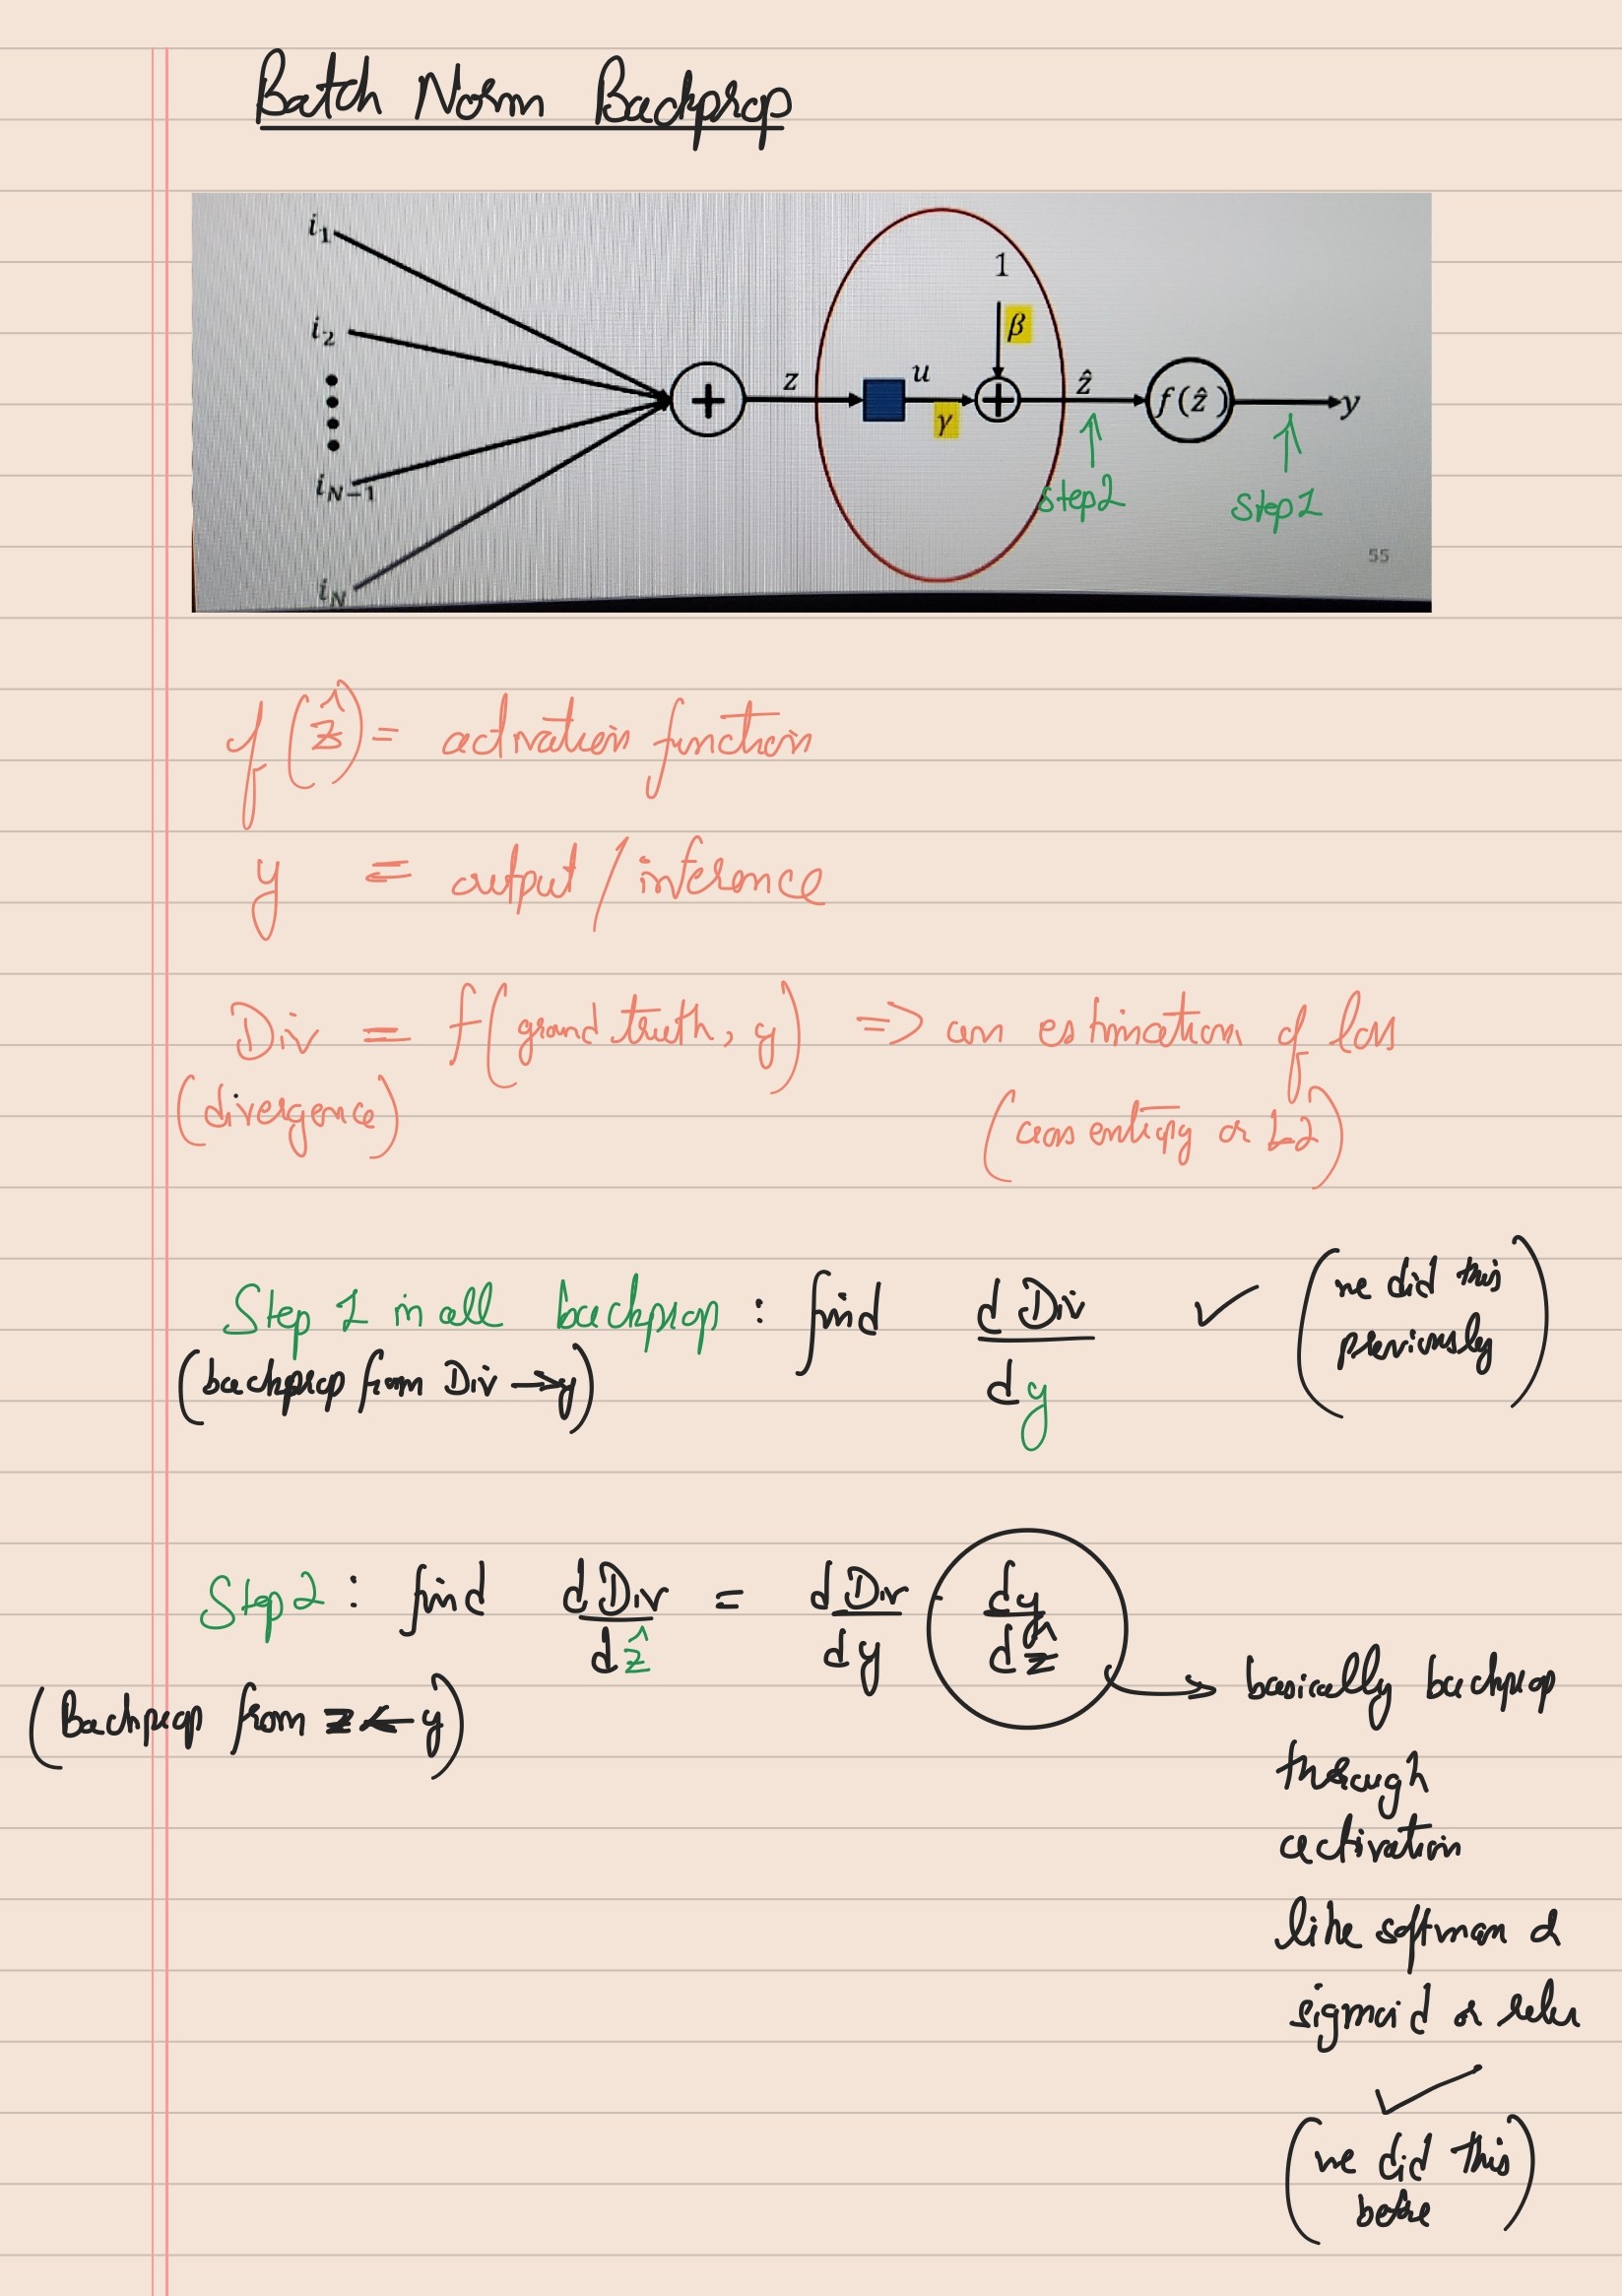 Batch Norm Backprop
i₁
i₂
i_{N-1}
i_N
+
z
u
γ
1
β
+
ẑ
f(ẑ)
y
step2
step1
55
f(ẑ) = activation function
y = output / inference
Div = f(ground truth, y) => an estimation of loss
(divergence)
(cross entropy or L2)
Step 1 in all backprop : find dDiv / dy ✓ (we did this previously)
(backprop from Div → y)
Step 2 : find dDiv / dẑ = dDiv / dy · dy / dẑ
(Backprop from z ← y)
basically backprop
through
activation
like softmax or
sigmoid or relu
✓
(we did this
before)